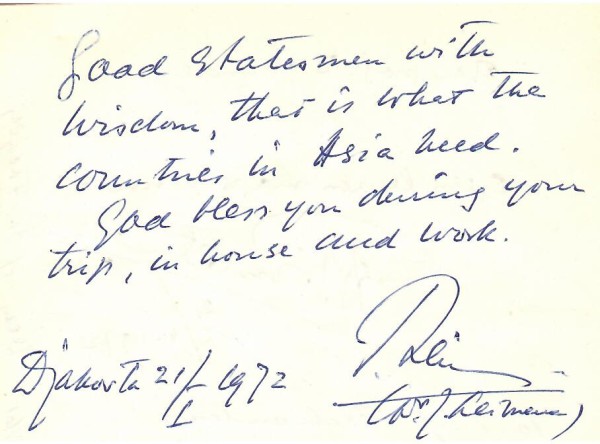 Good statesmen with
wisdom, that is what the
countries in Asia need.
God bless you during your
trip, in house and work.
Djakarta 21/I 1972
(Dr. J. Leimena)